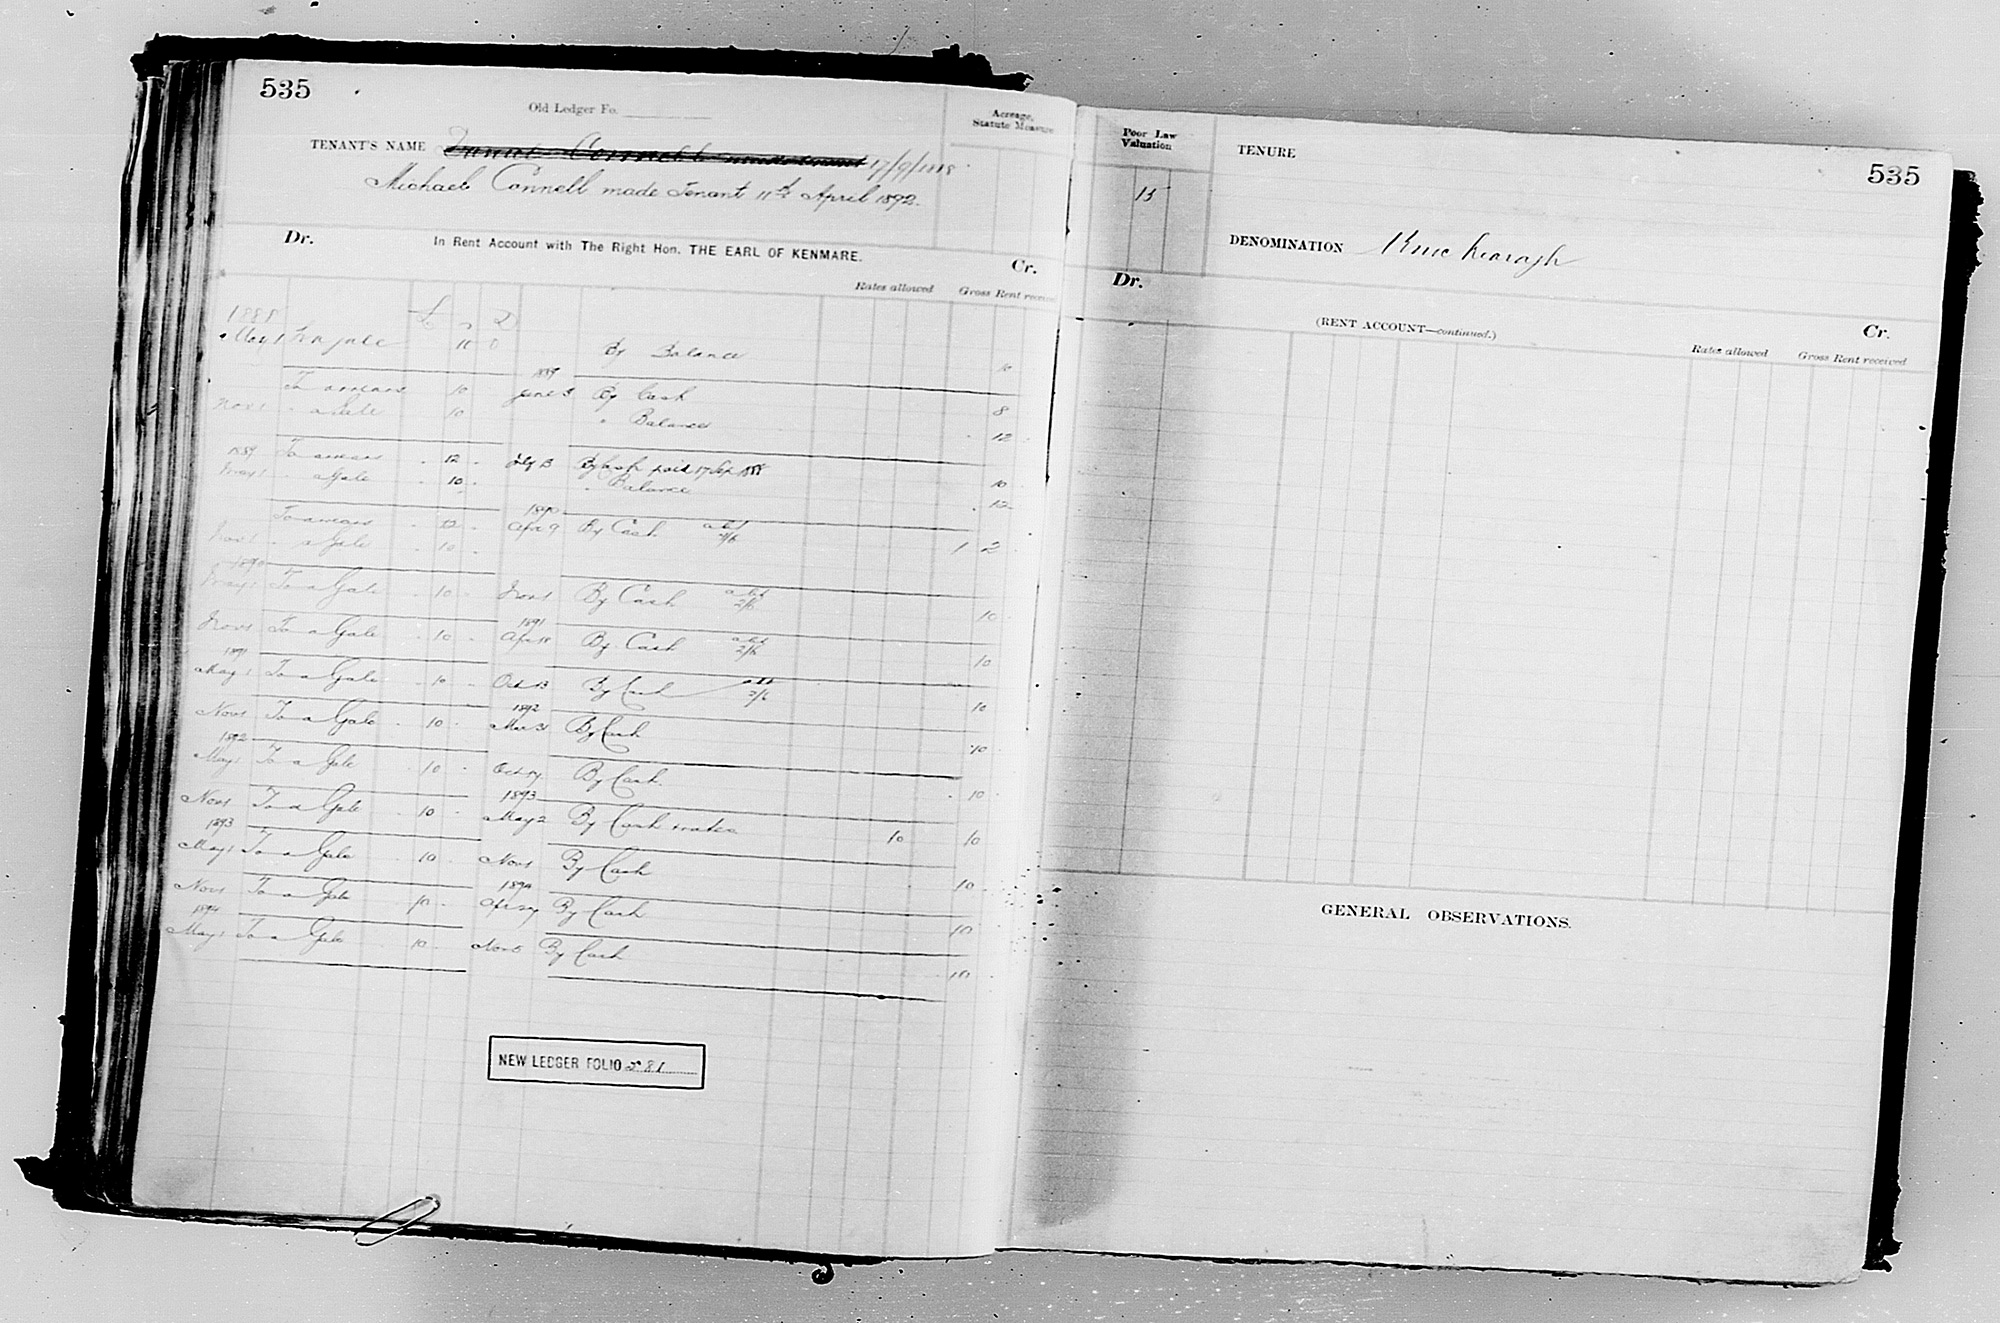 535
Old Ledger Fo.
Acreage, Statute Measure
TENANT'S NAME Connell made tenant 17/9/1888
Michael Connell made Tenant 11th April 1892.
Dr. In Rent Account with The Right Hon. THE EARL OF KENMARE. Cr.
Rates allowed Gross Rent received
1888 £ s D
May 1 To a gale 10 0 By Balance 10
1889
To arrears 10 June 3 By Cash 8
Nov 1 " a Gale 10 " Balance 12
1889 To arrears 12 July 13 By Cash paid 17 Sep 1888 10
May 1 " a Gale 10 " Balance 12
1890
To arrears 12 Apr 9 By Cash abt 2/6
Nov 1 " a Gale 10 1 2
1890
May 1 To a Gale 10 Nov 1 By Cash abt 2/6 10
1891
Nov 1 To a Gale 10 Apr 18 By Cash abt 2/6 10
1891
May 1 To a Gale 10 Oct 13 By Cash abt 2/6 10
1892
Nov 1 To a Gale 10 Mar 31 By Cash 10
1892
May 1 To a Gale 10 Oct 19 By Cash 10
1893
Nov 1 To a Gale 10 May 2 By Cash & rates 10 10
1893
May 1 To a Gale 10 Nov 1 By Cash 10
1894
Nov 1 To a Gale 10 Apr 24 By Cash 10
1894
May 1 To a Gale 10 Nov 5 By Cash 10
NEW LEDGER FOLIO 281
Poor Law Valuation
TENURE
535
15
DENOMINATION
Dr. (RENT ACCOUNT—continued.) Cr.
Rates allowed Gross Rent received
GENERAL OBSERVATIONS.